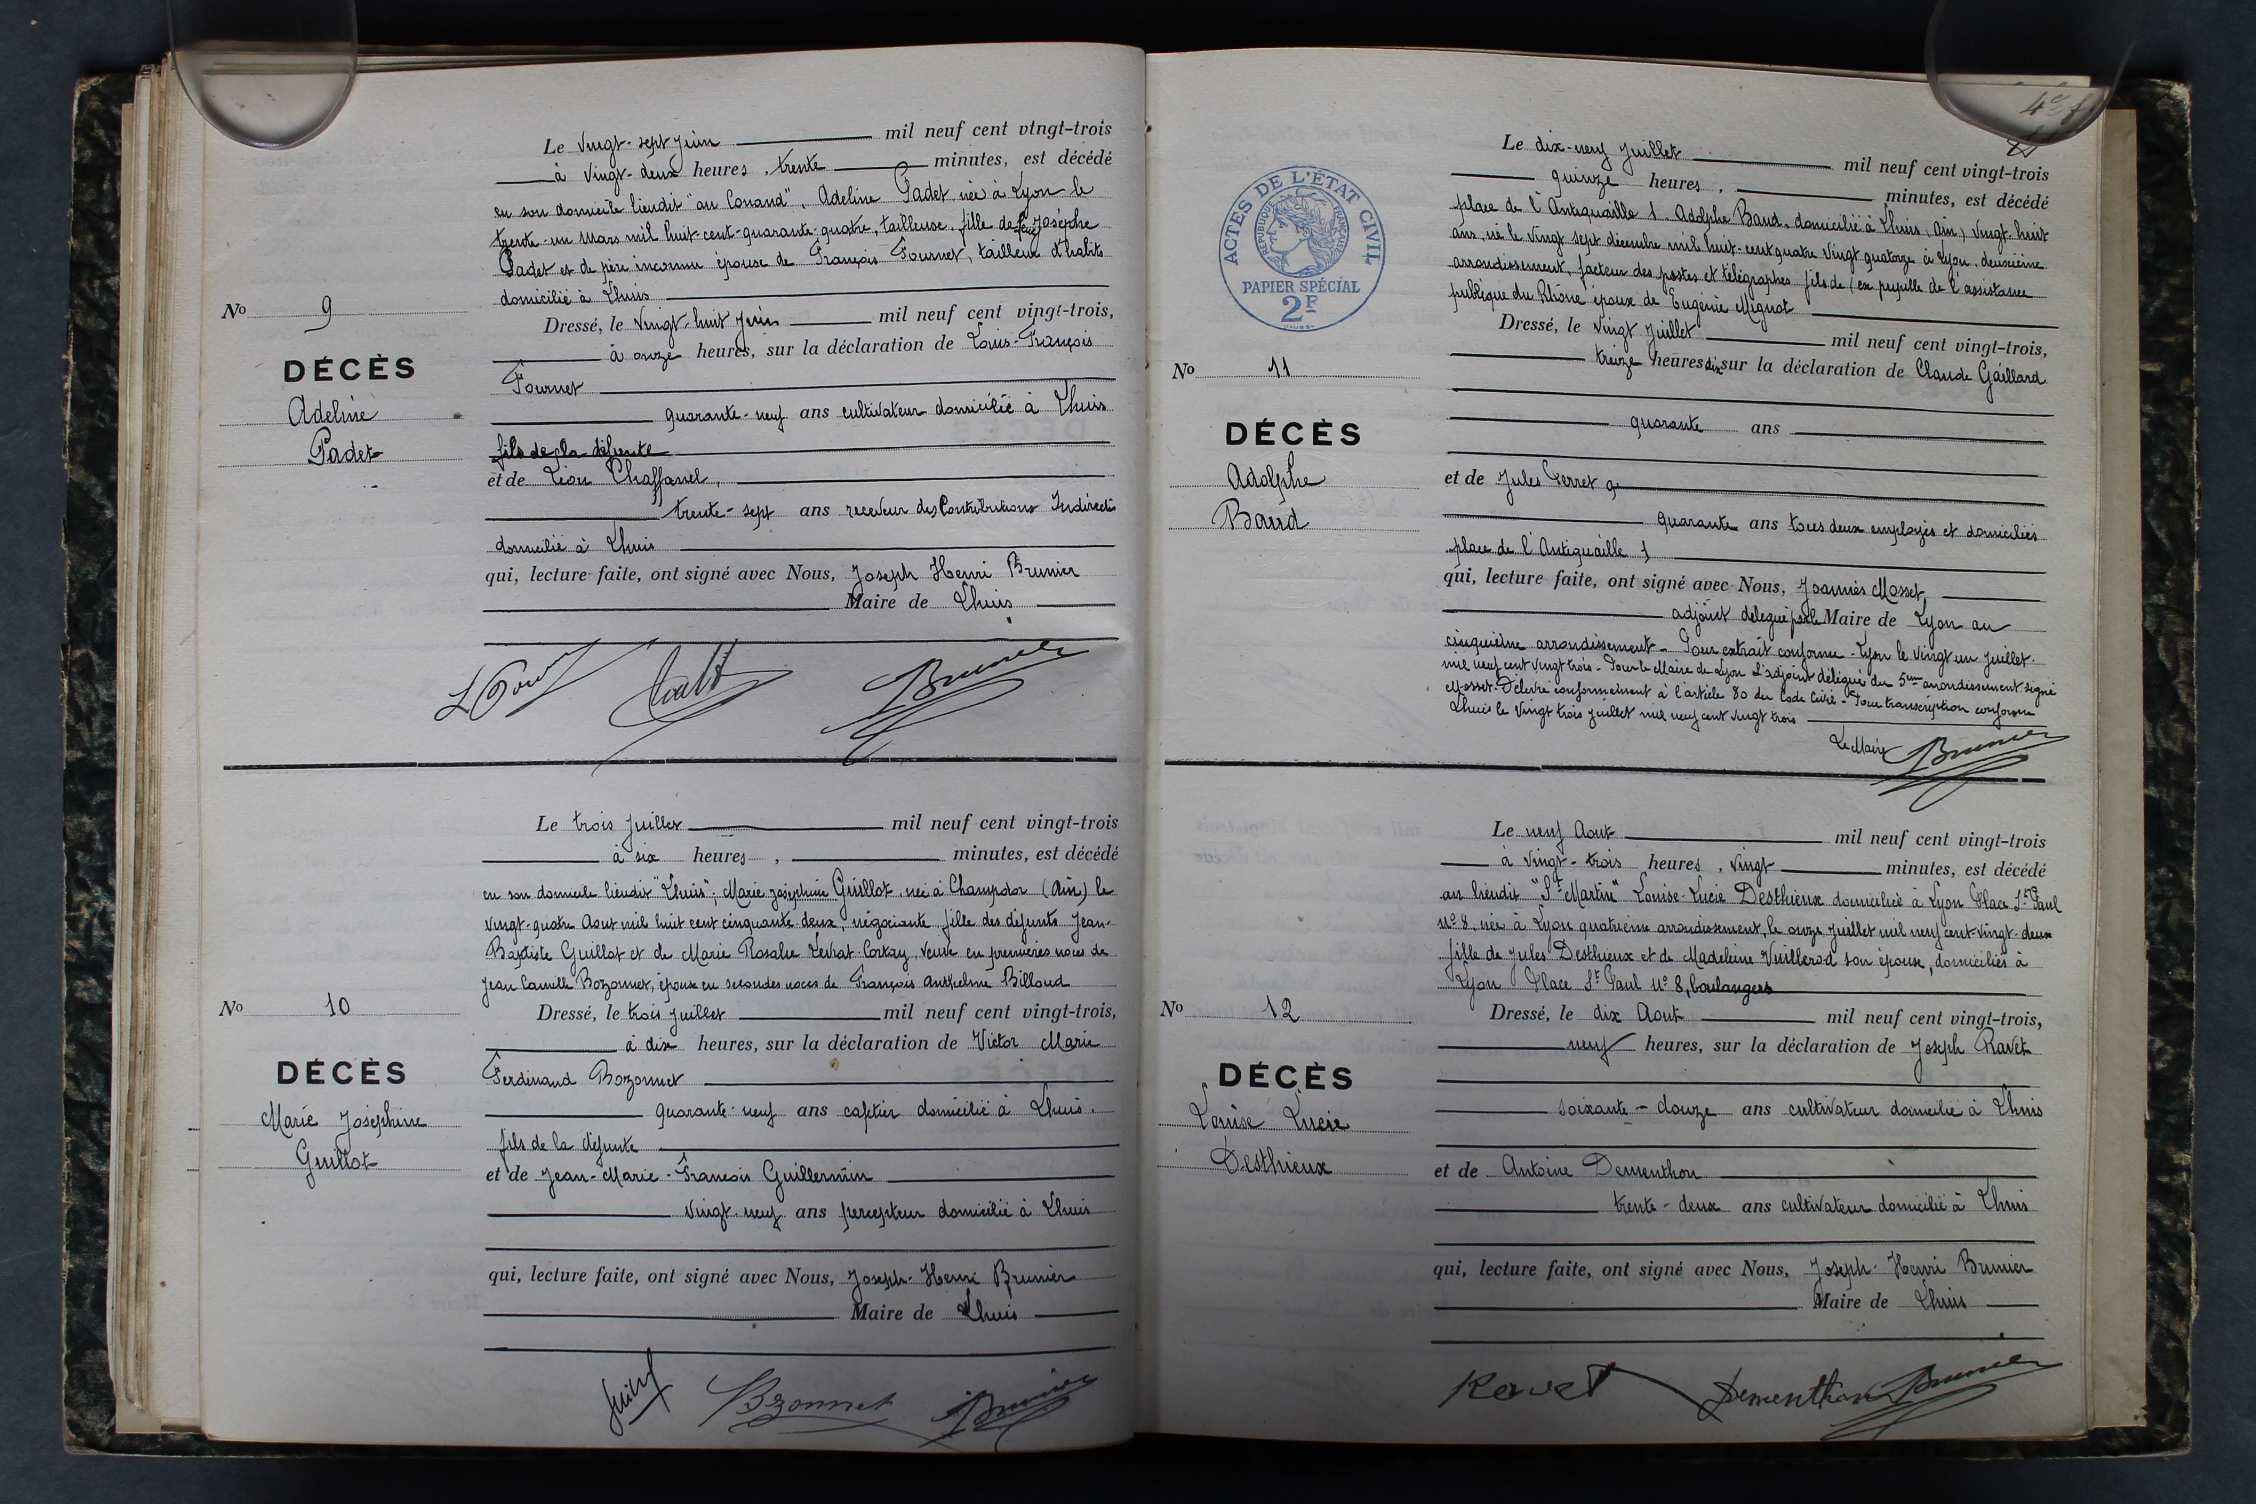 Le vingt-sept juin mil neuf cent vingt-trois
à vingt-deux heures, trente minutes, est décédé
en son domicile lieudit "au Conand", Adeline Padet née à Lyon le
trente-un Mars mil huit-cent-quarante-quatre, tailleuse, fille de feu Josèphe
Padet et de père inconnu épouse de François Fournet, tailleur d'habits
domicilié à Lhuis
No 9
DÉCÈS
Adeline
Padet
Dressé, le vingt-huit juin mil neuf cent vingt-trois,
à onze heures, sur la déclaration de Louis-François
Fournet
quarante-neuf ans cultivateur domicilié à Lhuis
fils de la défunte
et de Léon Chaffanel,
trente-sept ans receveur des Contributions Indirectes
domicilié à Lhuis
qui, lecture faite, ont signé avec Nous, Joseph Henri Brunier
Maire de Lhuis
Brunier
Le trois juillet mil neuf cent vingt-trois
à six heures, minutes, est décédé
en son domicile lieudit "Lhuis", Marie Joséphine Guillot, née à Champdor (Ain) le
vingt-quatre Aout mil huit cent cinquante-deux, négociante, fille des défunts Jean-
Baptiste Guillot et de Marie Rosalie Levrat-Cortay, veuve en premières noces de
Jean Camille Bozonnet, épouse en secondes noces de François Anthelme Billoud
No 10
DÉCÈS
Marie Joséphine
Guillot
Dressé, le trois juillet mil neuf cent vingt-trois,
à dix heures, sur la déclaration de Victor Marie
Ferdinand Bozonnet
quarante-neuf ans cafetier domicilié à Lhuis.
fils de la défunte
et de Jean-Marie-François Guillermin
vingt-neuf ans percepteur domicilié à Lhuis
qui, lecture faite, ont signé avec Nous, Joseph-Henri Brunier
Maire de Lhuis
Bozonnet Brunier
ACTES DE L'ÉTAT CIVIL
RÉPUBLIQUE FRANÇAISE
PAPIER SPÉCIAL
2F
Le dix-neuf juillet mil neuf cent vingt-trois
quinze heures, minutes, est décédé
place de l'Antiquaille 1. Adolphe Baud, domicilié à Lhuis (Ain) vingt-huit
ans, né le vingt sept décembre mil huit-cent quatre vingt quatorze à Lyon, deuxième
arrondissement, facteur des postes et télégraphes fils de (ex pupille de l'assistance
publique du Rhône époux de Eugénie Mignot
No 11
DÉCÈS
Adolphe
Baud
Dressé, le vingt juillet mil neuf cent vingt-trois,
treize heures dix sur la déclaration de Claude Gaillard
quarante ans
et de Jules Perret
quarante ans tous deux employés et domiciliés
place de l'Antiquaille 1
qui, lecture faite, ont signé avec Nous, Joannès Mosset,
adjoint délégué par le Maire de Lyon au
cinquième arrondissement - Pour extrait conforme - Lyon le vingt un juillet.
mil neuf cent vingt trois - Pour le Maire de Lyon L'adjoint délégué du 5me arrondissement signé
Mosset. Délivré conformément à l'article 80 du Code Civil - Pour transcription conforme
Lhuis le vingt trois juillet mil neuf cent vingt trois
Le Maire Brunier
Le neuf Aout mil neuf cent vingt-trois
à vingt-trois heures, vingt minutes, est décédé
au lieudit "St Martin" Louise-Lucie Desthieux domiciliée à Lyon Place St Paul
No 8, née à Lyon quatrième arrondissement, le onze juillet mil neuf cent-vingt-deux
fille de Jules Desthieux et de Madeleine Vuillerod son épouse, domiciliés à
Lyon Place St Paul No 8, boulangers
No 12
DÉCÈS
Louise Lucie
Desthieux
Dressé, le dix Aout mil neuf cent vingt-trois,
neuf heures, sur la déclaration de Joseph Ravet
soixante-douze ans cultivateur domicilié à Lhuis
et de Antoine Dementhon
trente-deux ans cultivateur domicilié à Lhuis
qui, lecture faite, ont signé avec Nous, Joseph-Henri Brunier
Maire de Lhuis
Ravet Dementhon Brunier